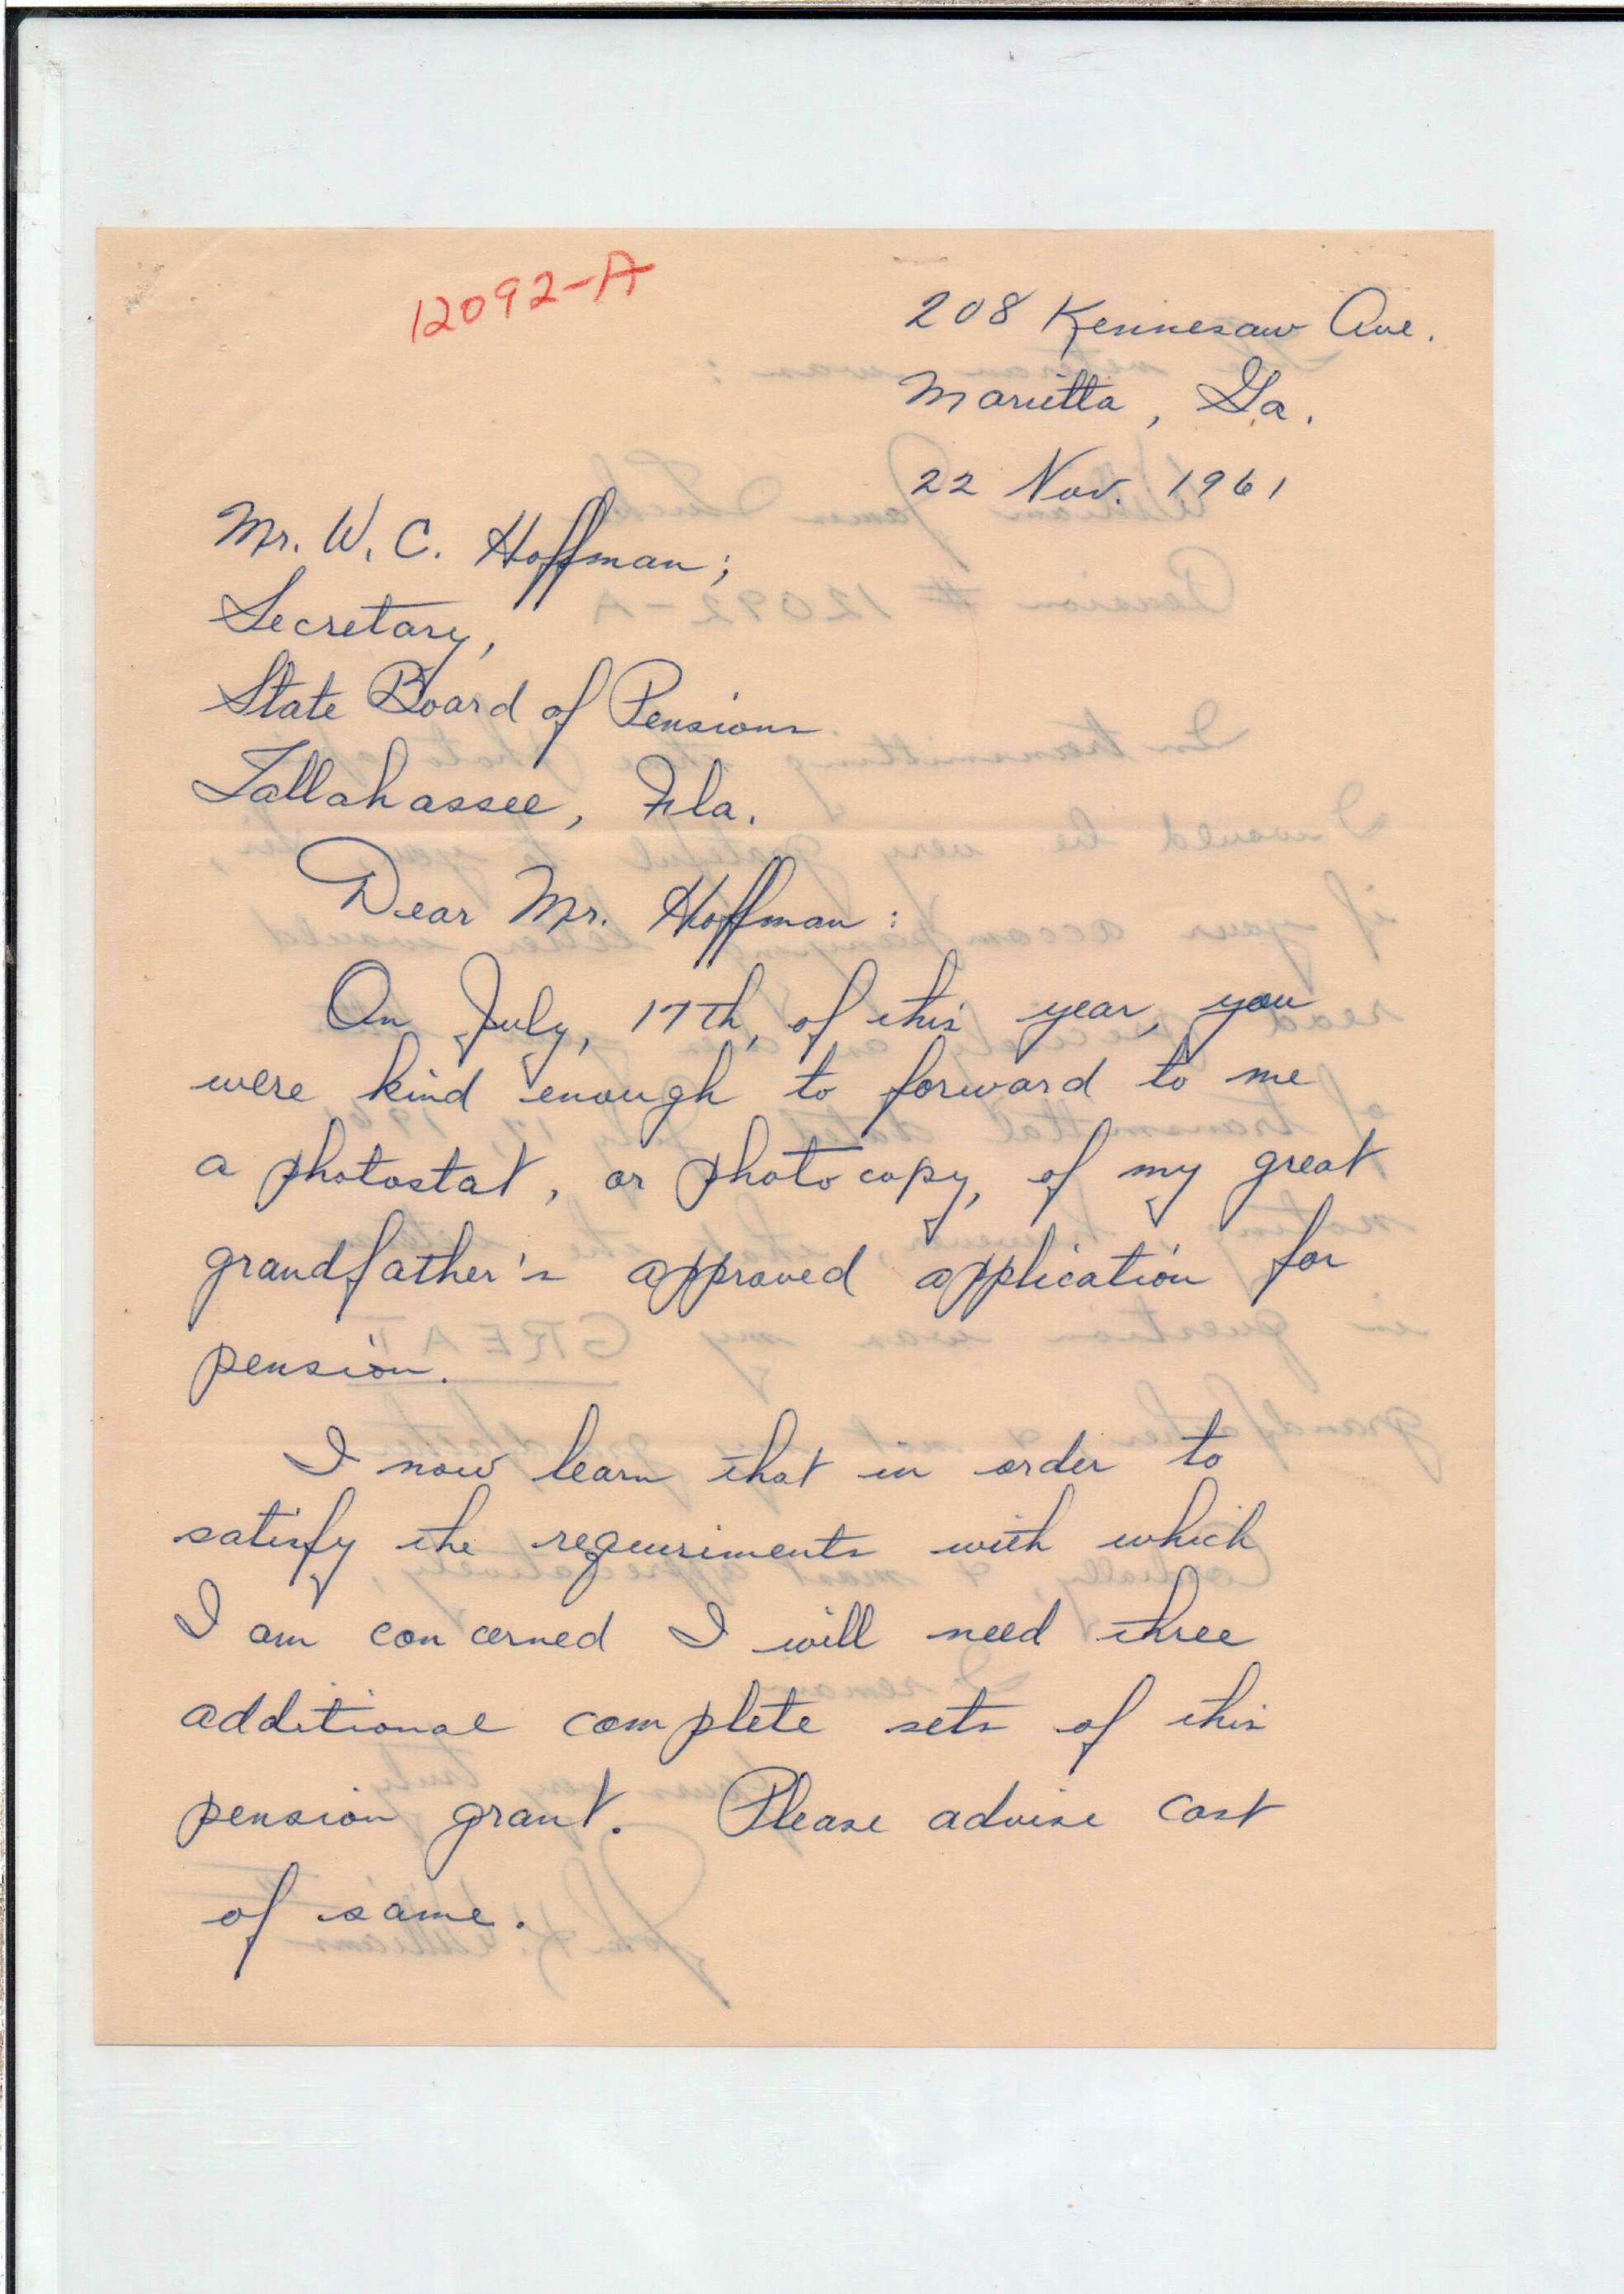 12092-A
208 Kennesaw Ave.
Marietta, Ga.
22 Nov. 1961
Mr. W. C. Hoffman;
Secretary,
State Board of Pensions
Tallahassee, Fla.
Dear Mr. Hoffman:
On July, 17th, of this year, you
were kind enough to forward to me
a photostat, or photocopy, of my great
grandfather's approved application for
pension.
I now learn that in order to
satisfy the requiriments with which
I am concerned I will need three
additional complete sets of this
pension grant. Please advise cost
of same.